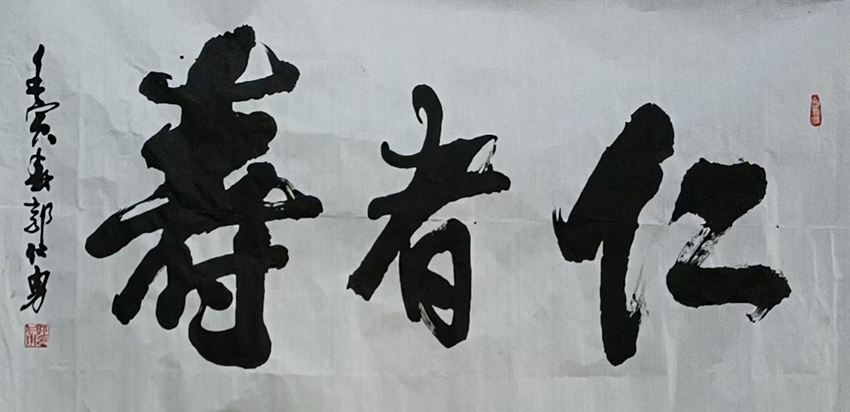 仁者寿
壬寅春郭仕勇